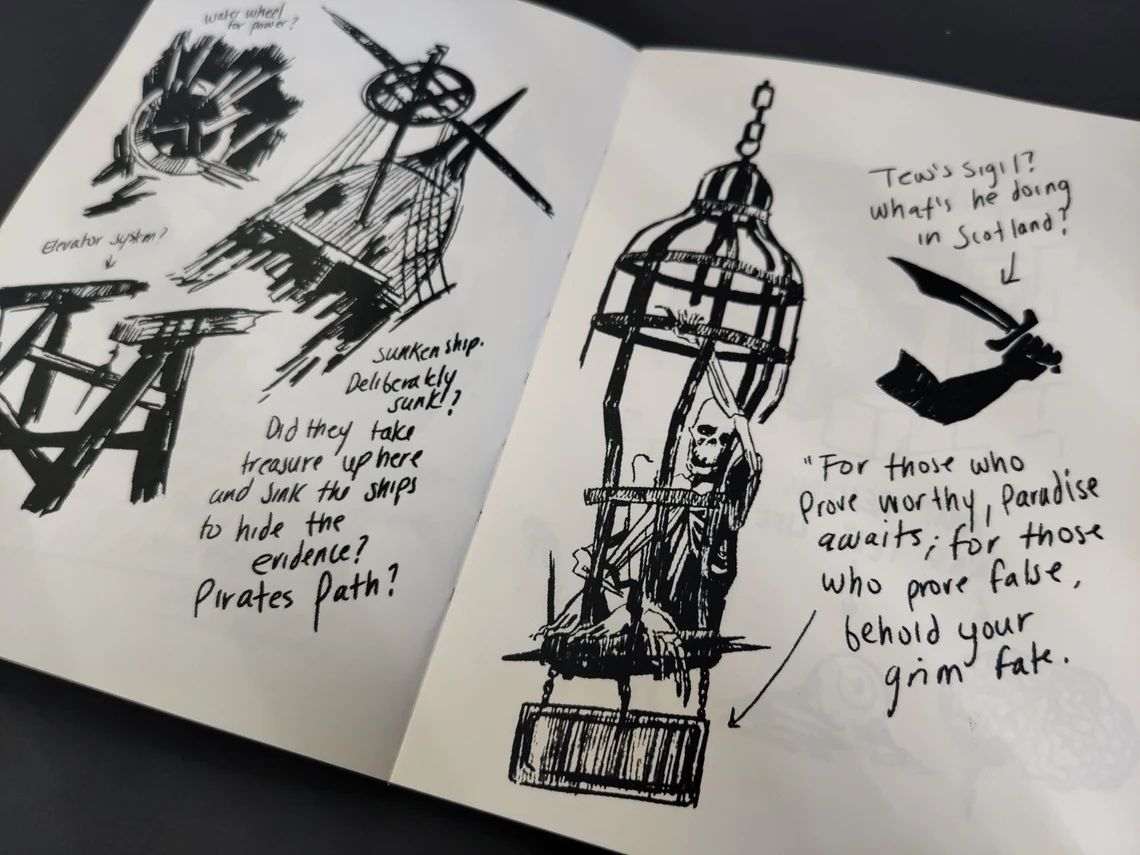 water wheel
for power?
Elevator system?
sunken ship.
Deliberately
sunk!?
Did they take
treasure up here
and sink the ships
to hide the
evidence?
Pirates Path?
Tew's sigil?
what's he doing
in Scotland?
"For those who
Prove worthy, Paradise
awaits; for those
who prove false,
behold your
grim fate.